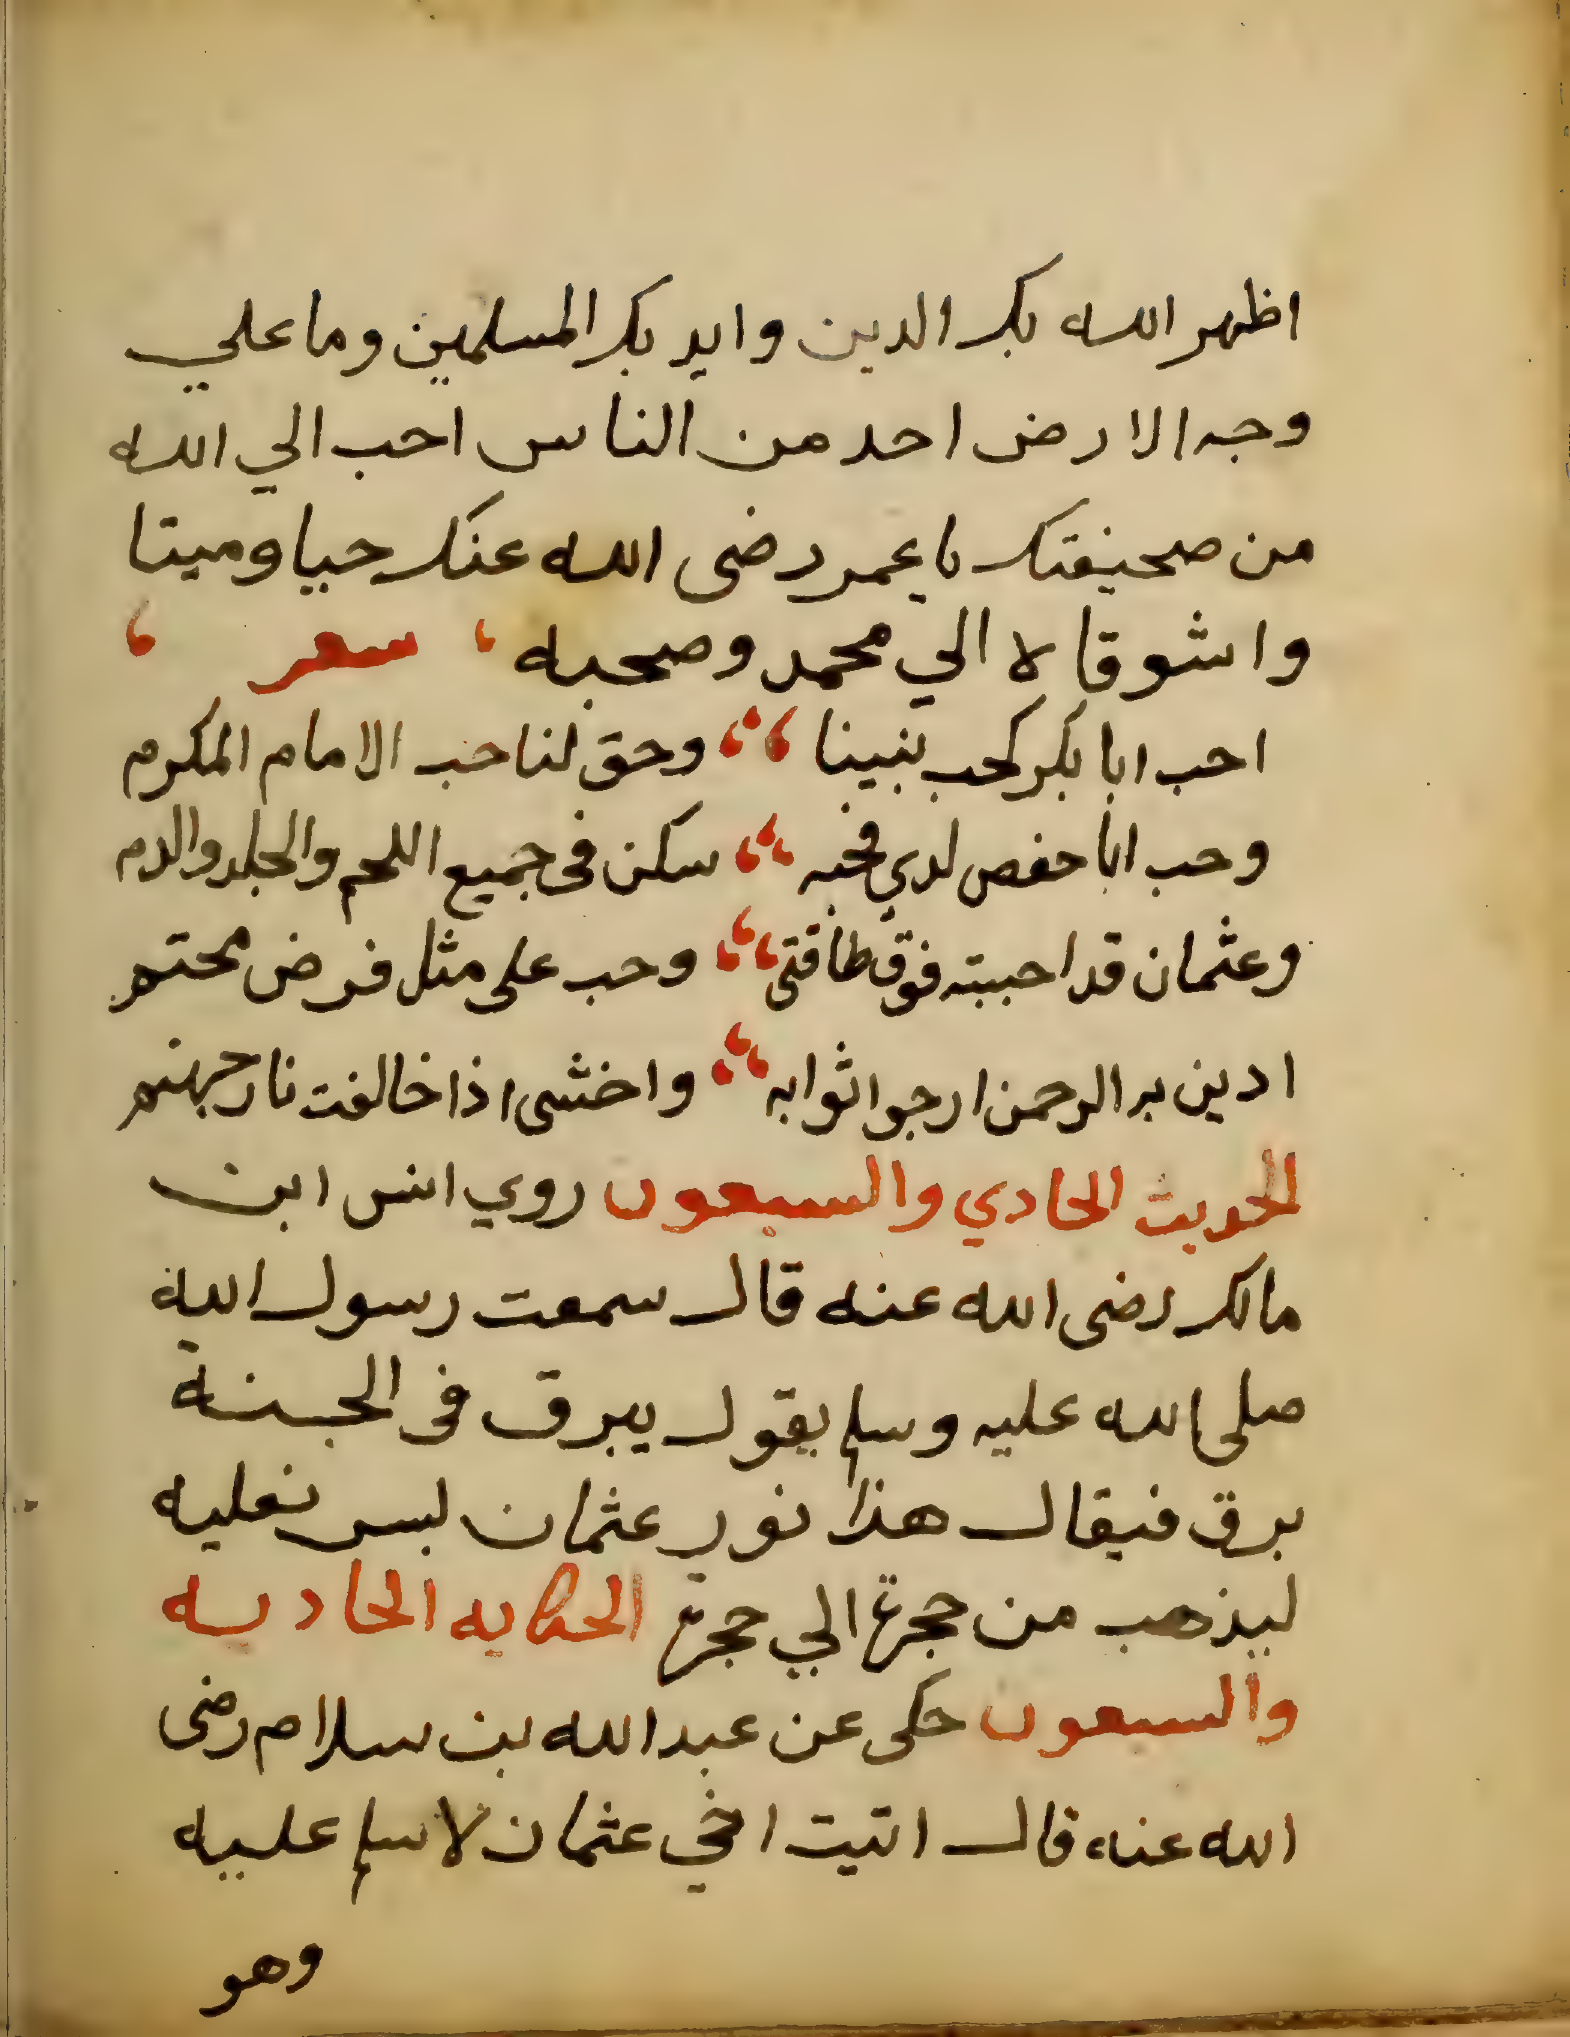 اظهر الله بك الدين وايد بك المسلمين وما علي
وجه الارض احد من الناس احب الي الله
من صحيفتك يا عمر رضى الله عنك حيا وميتا
واشوقاه الي محمد وصحبه ، سعر ،
احب ابا بكر كحب نبينا وحق لنا حب الامام المكرم
وحب ابا حفص لدي فحبه سكن فى جميع اللحم والجلد والدم
وعثمان قد احببته فوق طاقتى وحب على مثل فرض محتم
ادين به الرحمن ارجوا ثوابه واخشى اذا خالفت نار جهنم
الحديث الحادي والسبعون روي انس ابن
مالك رضى الله عنه قال سمعت رسول الله
صلى الله عليه وسلم يقول يبرق فى الجنة
برق فيقال هذا نور عثمان لبس نعليه
ليذهب من حجرة الي حجرة الحكايه الحاديه
والسبعون حكى عن عبد الله بن سلام رضى
الله عنه قال اتيت اخي عثمان لاسلم عليه
وهو